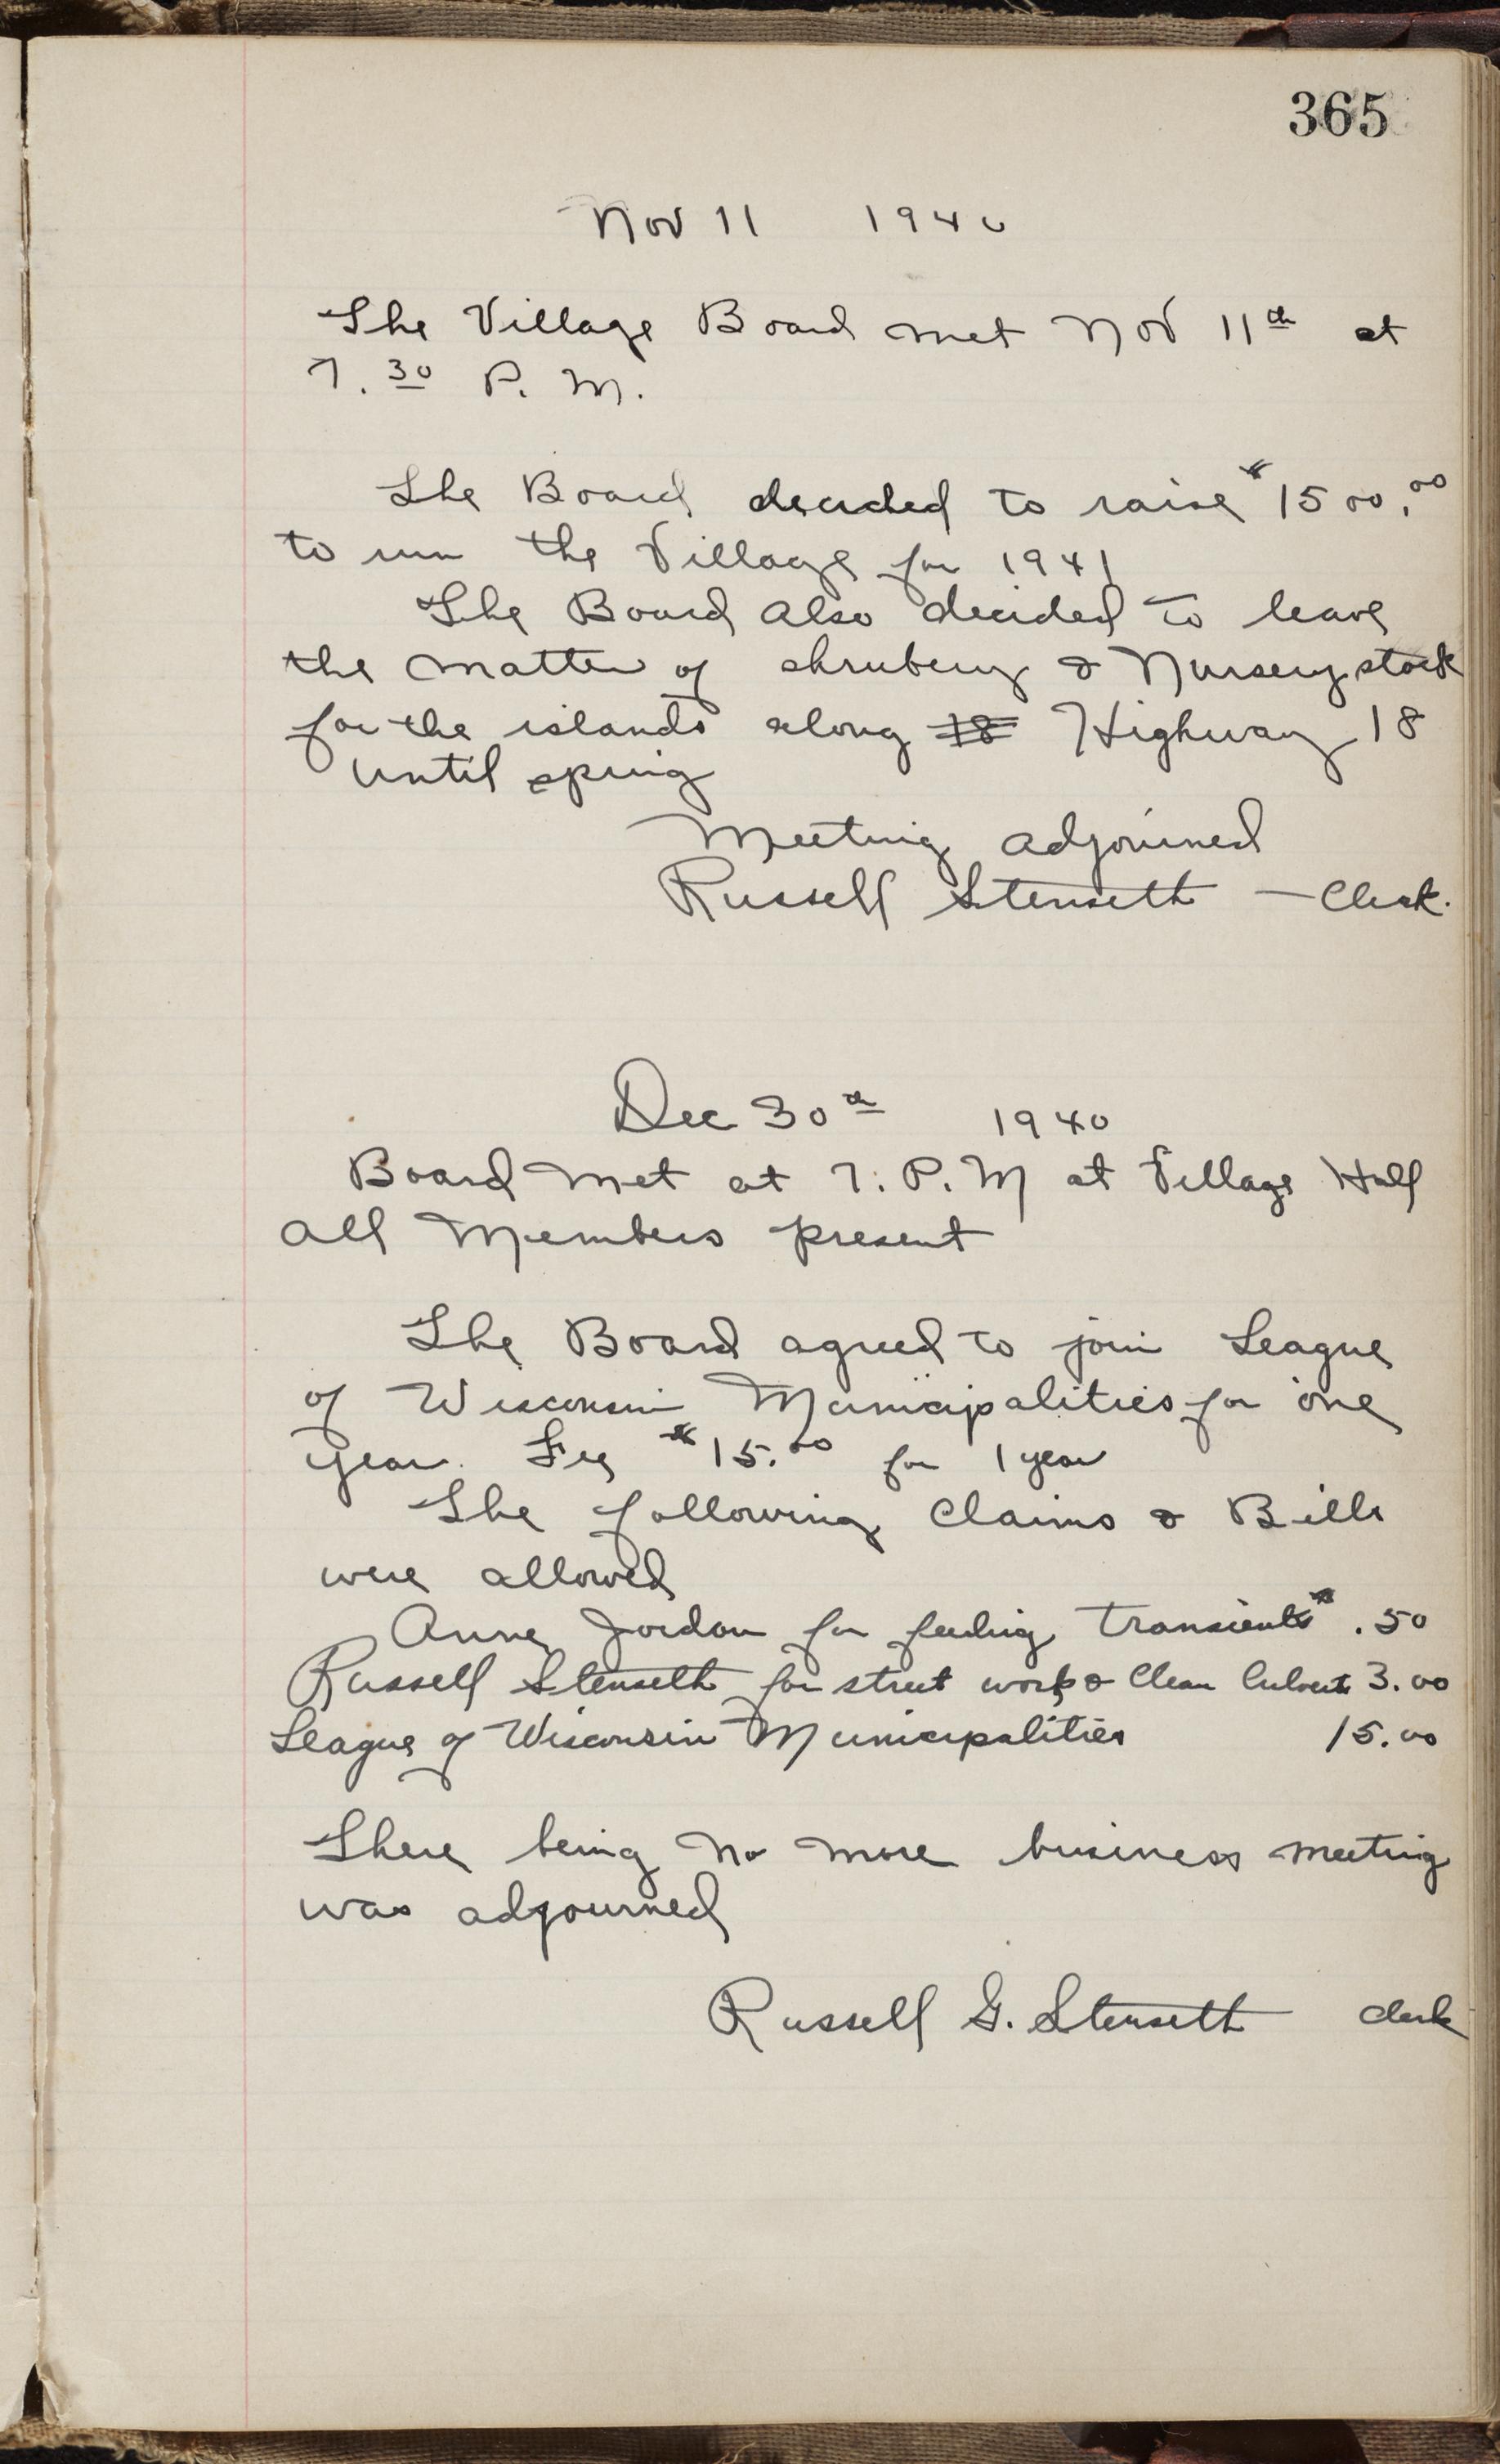 365
Nov 11 1940
The Village Board met Nov 11th at
7.30 P. M.
The Board decided to raise $1500.00
to run the Village for 1941
The Board also decided to leave
the matter of shrubery & Nursery stock
for the islands along 18 Highway 18
until spring
Meeting adjourned
Russell Stenseth — Clerk.
Dec 30th 1940
Board met at 7. P. M at Village Hall
All Members present
The Board agreed to join League
of Wisconsin Municipalities for one
year. Fee $15.00 for 1 year
The following Claims & Bills
were allowed
Anne Jordan for feeding transients $ .50
Russell Stenseth for street work & Clean Culvert 3.00
League of Wisconsin Municipalities 15.00
There being no more business meeting
was adjourned
Russell G. Stenseth clerk